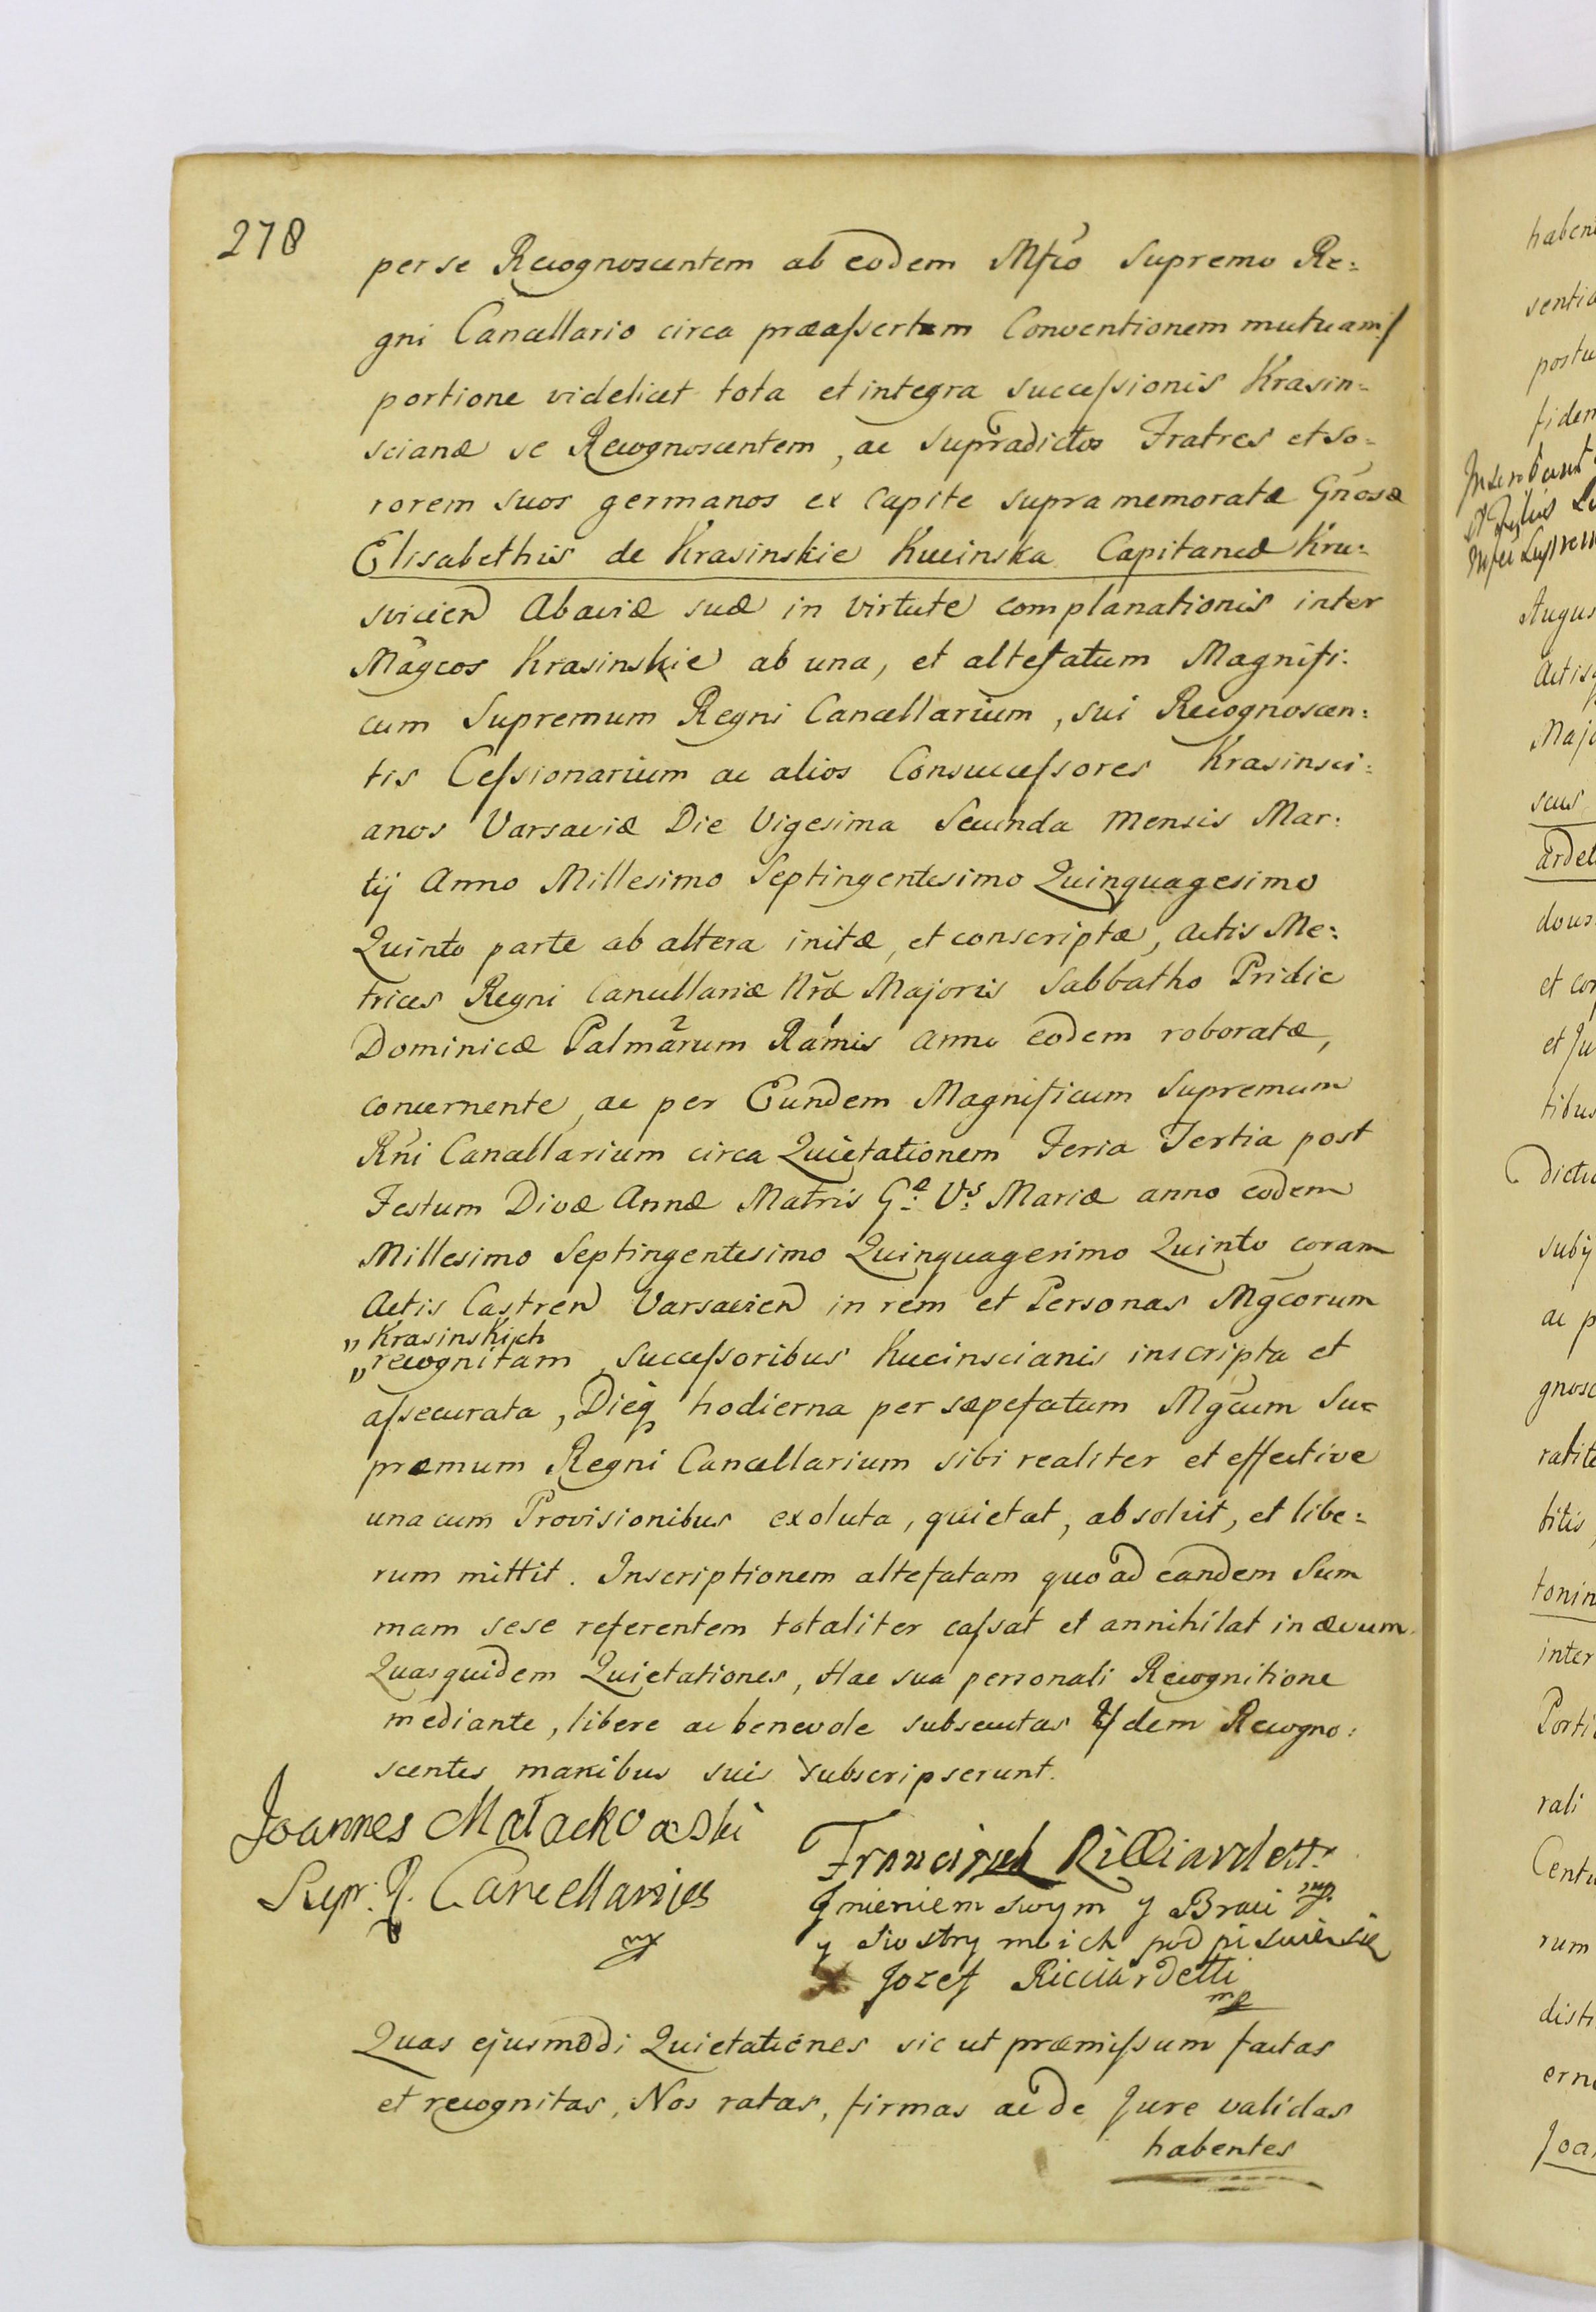 278
per se Recognoscentem ab eodem Mfco Supremo Re:
gni Cancellario circa præaſsertam Conventionem mutuam
portione videlicet tota et integra succeſsionis Krasin=
scianæ se Recognoscentem, ac supradictos Fratres et so=
rorem suos germanos ex Capite supra memoratæ Gnosæ
Elisabethis de Krasinskie Kucinska Capitaneæ Kru:
svicien Abaviæ suæ in virtute complanationis inter
Magcos Krasinskie ab una, et altefatum Magnifi:
cum Supremum Regni Cancellarium, sui Recognoscen:
tis Ceſsionarium ac alios Consucceſsores Krasinsci:
anos Varsaviæ Die Vigesima Secunda Mensis Mar:
tij Anno Millesimo Septingentesimo Quinquagesimo
Quinto parte ab altera initæ, et conscriptæ, Actis Me:
trices Regni Cancellariæ Nræ Majoris Sabbatho Pridie
Dominicæ Palmarum Ramis Anno eodem roboratæ,
concernente, ac per Eundem Magnificum Supremum
Rni Cancellarium circa Quietationem Feria Tertia post
Festum Divæ Annæ Matris G:æ V:s Mariæ anno eodem
Millesimo Septingentesimo Quinquagesimo Quinto coram
Actis Castren Varsavien in rem et Personas Mgcorum
„ Krasinskich
„ recognitam, Succeſsoribus Kucinscianis inscripta et
aſsecurata, Dieq hodierna per sæpefatum Mgcum Su=
præmum Regni Cancellarium sibi realiter et effective
una cum Provisionibus exoluta, quietat, absolvit, et libe:
rum mittit. Inscriptionem altefatam quo ad eandem Sum
mam sese referentem totaliter caſsat et annihilat in ævum.
Quas quidem Quietationes, Hac sua personali Recognitione
mediante, libere ac benevole subsecutas Ijdem Recogno:
scentes manibus suis subscripserunt.
Joannes Małachowski
Supr: R. Cancellarius
mp
Francisck Ricciardetti
mp
Jmieniem swym y Braci
y Siostry moich podpisuię się
Jozef Ricciardetti
mp
Quas ejusmodi Quietationes sic ut præmiſsum factas
et recognitas, Nos ratas, firmas ac de Jure validas
habentes
haben
sentia
postu
fidem
Inscribunt
Augus
Actisq
Majo
scus
ardet
dour
et cor
et Ju
tibus
dictu
subij
ac p
gnosc
ratite
bitis,
tonin
inter
Porti
rali
Centu
rum
disti
erne
Joa